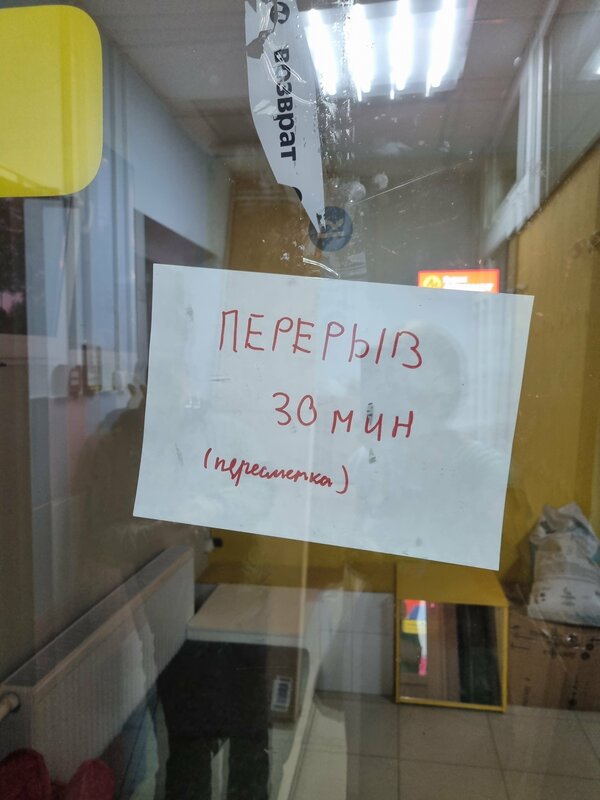 возврат
ПЕРЕРЫВ
30 мин
(пересменка)